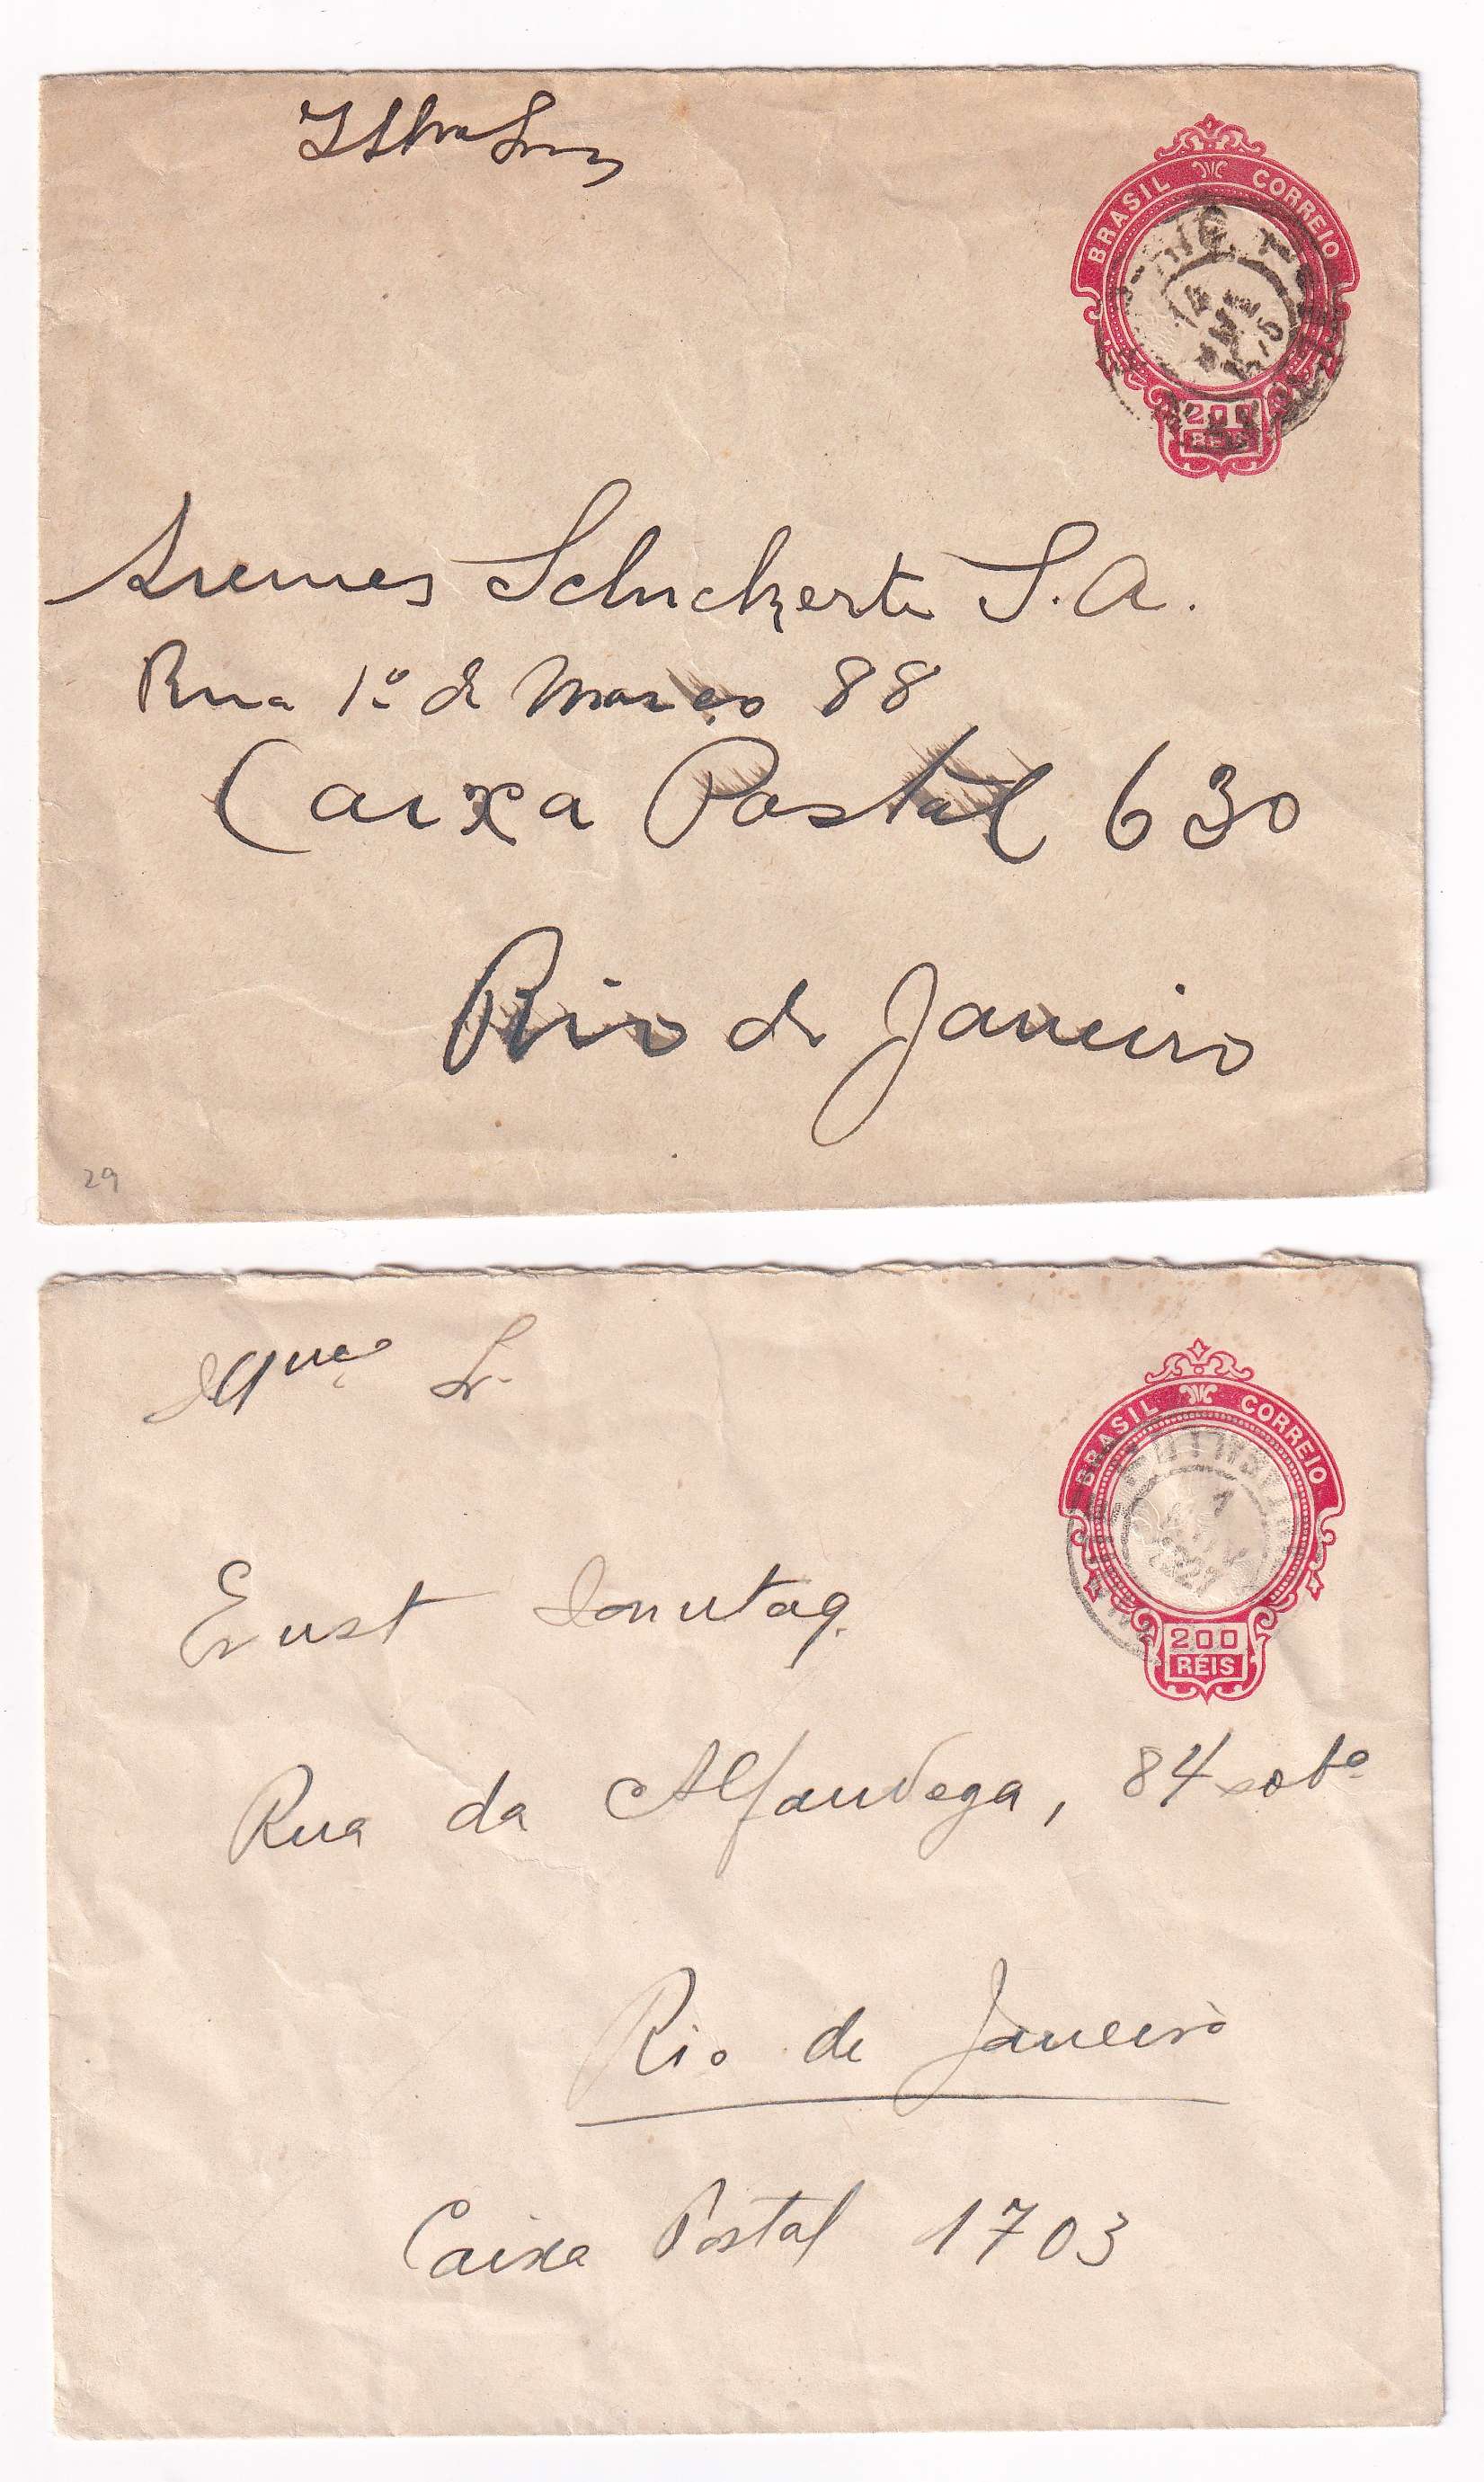 BRASIL CORREIO
200
RÉIS
Schuckert S.A.
Rua 1º de Março 88
Caixa Postal 630
Rio de Janeiro
29
BRASIL CORREIO
1
1927
200
RÉIS
Sr.
Ernst Sonntag.
Rua da Alfandega, 84 sobº
Rio de Janeiro
Caixa Postal 1703